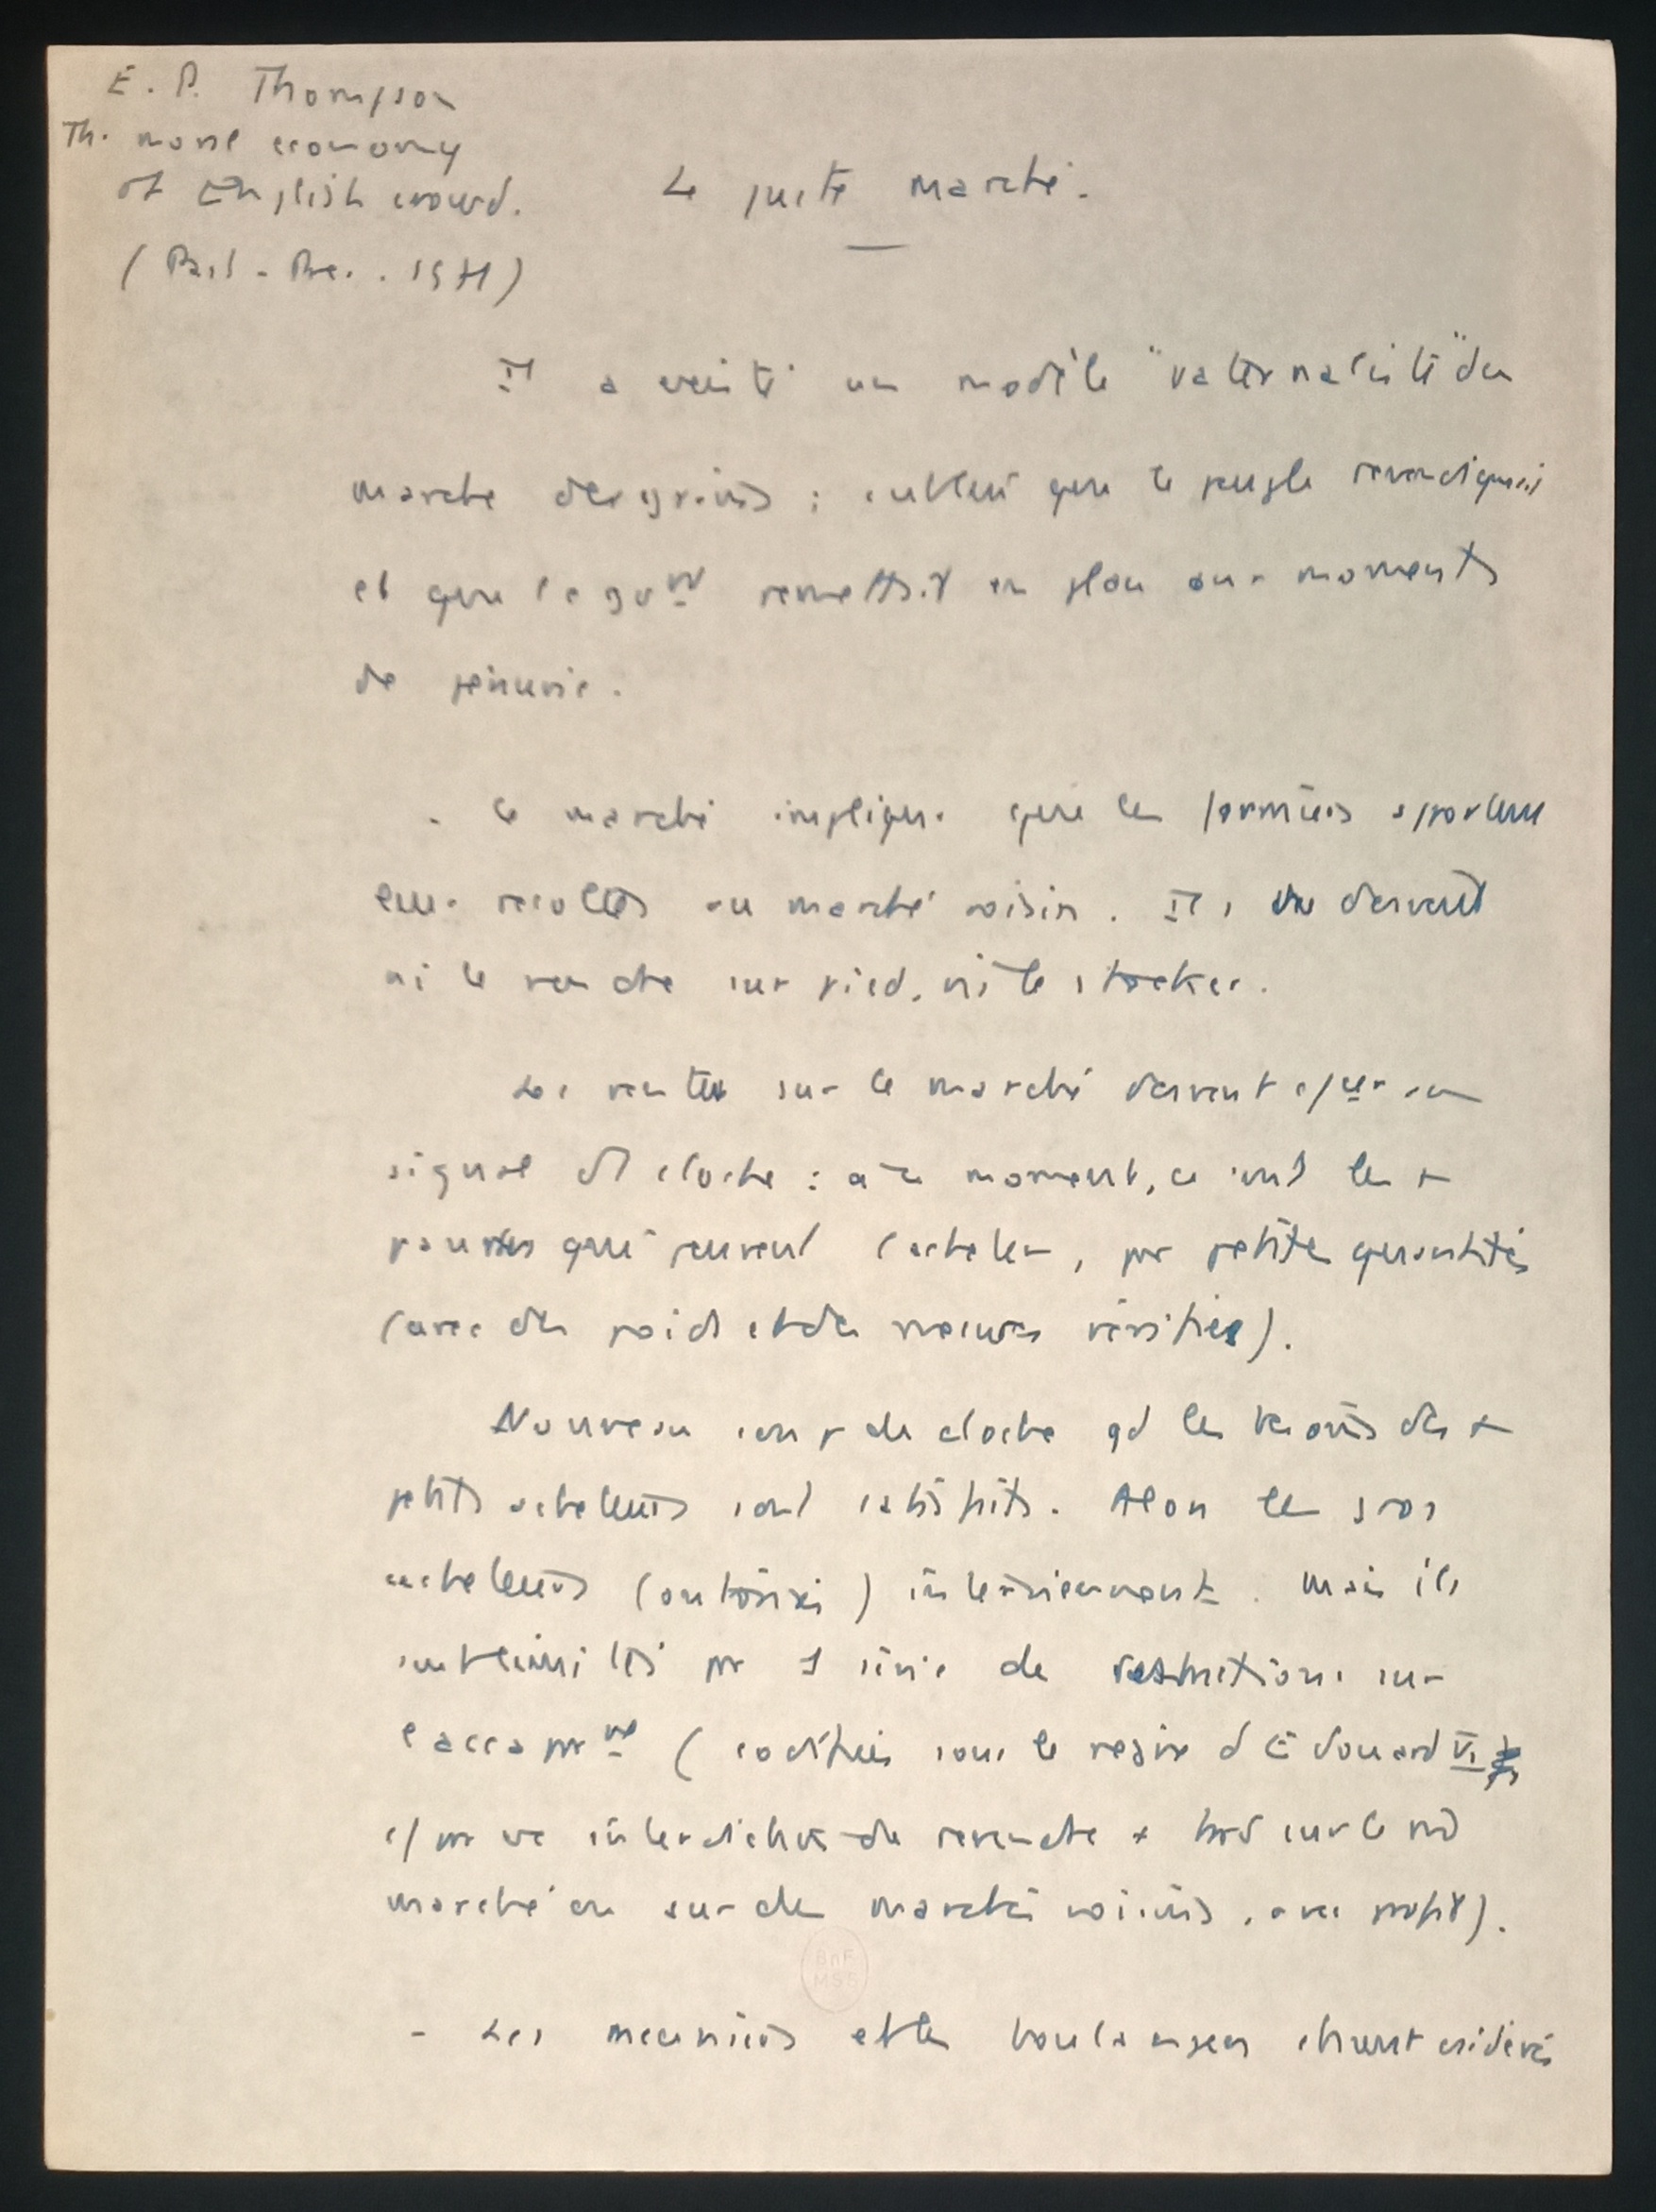 E. P. Thompson
Th. moral economy
of English crowd.
(Past - Pre. . 1971)
Le juste marché.
Il a existé un modèle "paternaliste" du
marché des grains ; celui que le peuple revendiquait
et que le gvnt remettait en place aux moments
de pénurie.
- le marché implique que les fermiers apportent
leurs récoltes au marché voisin. Ils ne doivent
ni le vendre sur pied, ni le stocker.
Les ventes sur le marché doivent à un
signal de cloche : à ce moment, ce sont les +
pauvres qui peuvent l'acheter, par petites quantités
(avec des poids et des mesures vérifiés).
Nouveau coup de cloche qd les besoins des +
petits acheteurs sont satisfaits. Alors les gros
acheteurs (autorisés) interviennent. Mais ils
sont limités par 1 série de restrictions sur
l'accapnt (codifiées sous le règne d'Édouard VI
interdiction de revendre + tard sur le m̂
marché ou sur des marchés voisins, avec profit).
- Les meuniers et les boulangers étaient considérés
BnF
MSS